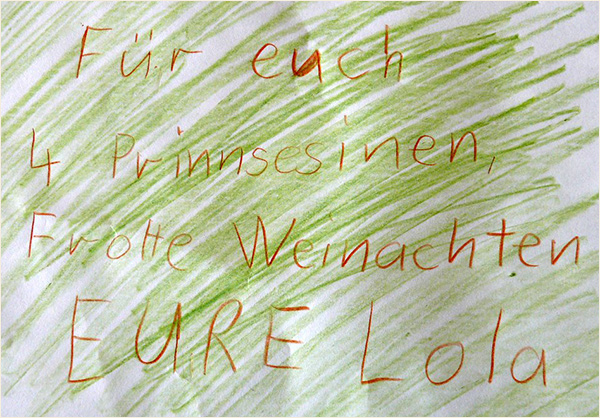 Für euch
4 Prinnsesinen,
Frohte Weinachten
EURE Lola